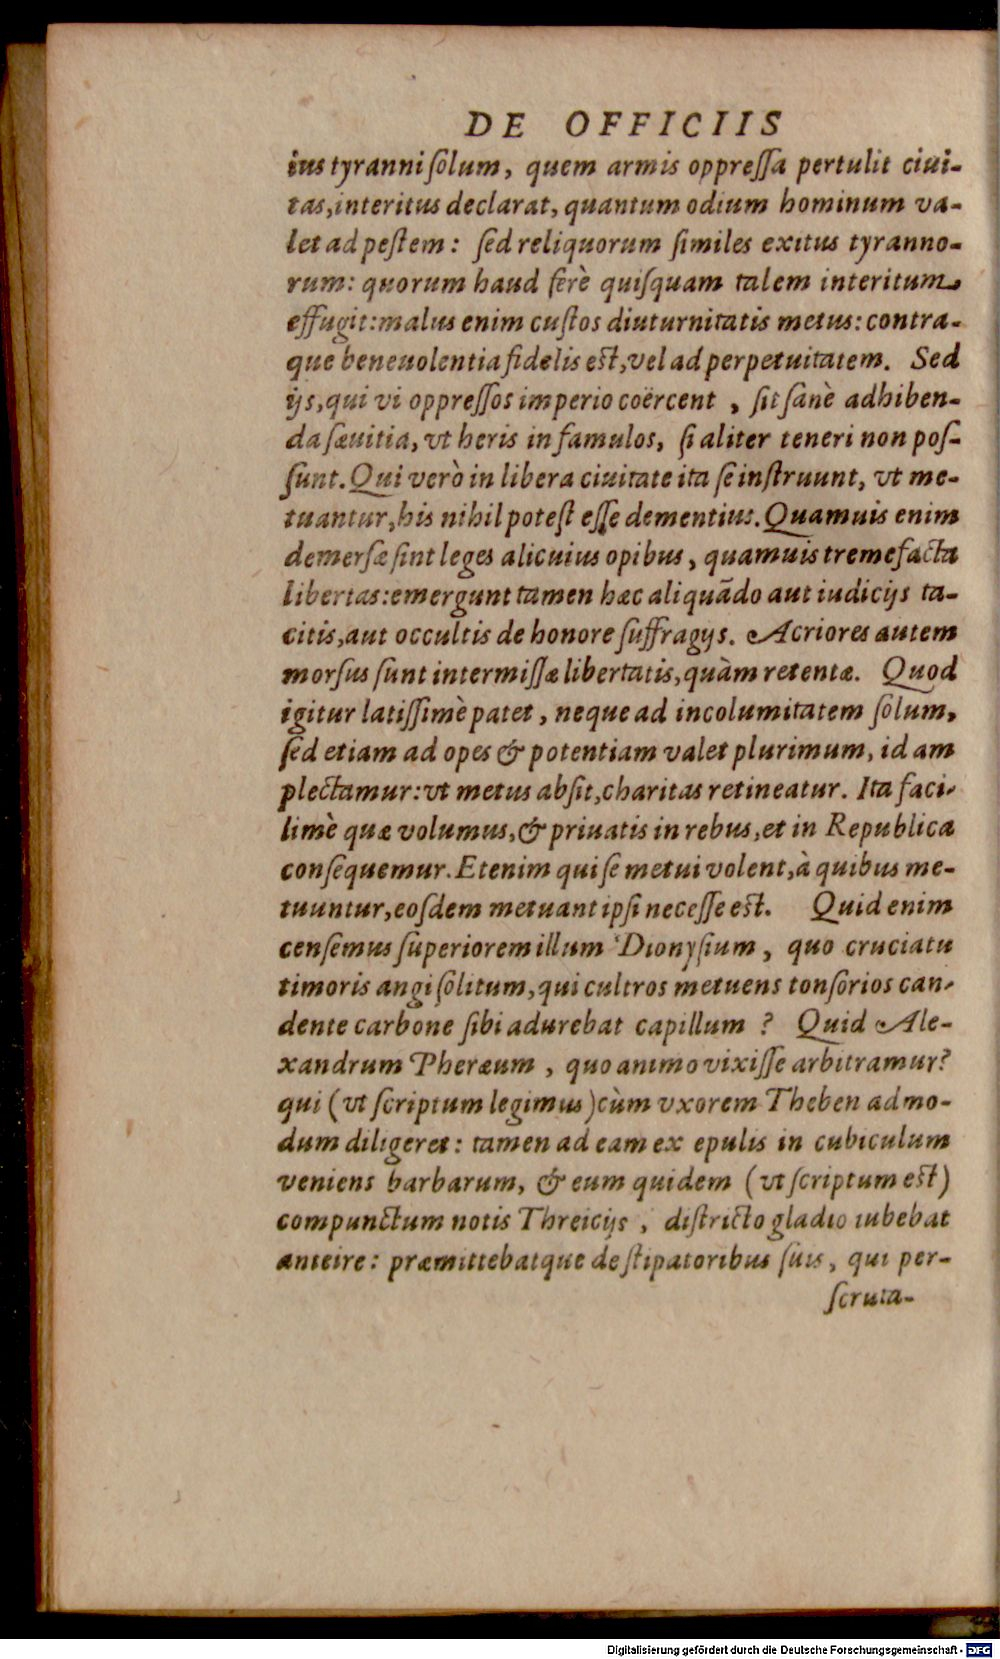 DE OFFICIIS
ius tyranni ſolum, quem armis oppreſſa pertulit ciui-
tas, interitus declarat, quantum odium hominum va-
let ad peſtem: ſed reliquorum ſimiles exitus tyranno-
rum: quorum haud ferè quiſquam talem interitum
effugit: malus enim cuſtos diuturnitatis metus: contra-
que beneuolentia fidelis eſt, vel ad perpetuitatem. Sed
ijs, qui vi oppreſſos imperio coërcent, ſit ſanè adhiben-
da ſæuitia, vt heris in famulos, ſi aliter teneri non poſ-
ſunt. Qui verò in libera ciuitate ita ſe inſtruunt, vt me-
tuantur, his nihil poteſt eſſe dementius. Quamuis enim
demerſæ ſint leges alicuius opibus, quamuis tremefacta
libertas: emergunt tamen hæc aliquãdo aut iudicijs ta-
citis, aut occultis de honore ſuffragijs. Acriores autem
morſus ſunt intermiſſæ libertatis, quàm retentæ. Quod
igitur latiſſimè patet, neque ad incolumitatem ſolum,
ſed etiam ad opes & potentiam valet plurimum, id am
plectamur: vt metus abſit, charitas retineatur. Ita faci-
limè quæ volumus, & priuatis in rebus, et in Republica
conſequemur. Etenim qui ſe metui volent, à quibus me-
tuuntur, eoſdem metuant ipſi neceſſe eſt. Quid enim
cenſemus ſuperiorem illum Dionyſium, quo cruciatu
timoris angi ſolitum, qui cultros metuens tonſorios can-
dente carbone ſibi adurebat capillum? Quid Ale-
xandrum Pheræum, quo animo vixiſſe arbitramur?
qui (vt ſcriptum legimus) cùm vxorem Theben admo-
dum diligeret: tamen ad eam ex epulis in cubiculum
veniens barbarum, & eum quidem (vt ſcriptum eſt)
compunctum notis Threicijs, diſtricto gladio iubebat
anteire: præmittebatque de ſtipatoribus ſuis, qui per-
ſcruta-
Digitalisierung gefördert durch die Deutsche Forschungsgemeinschaft - DFG